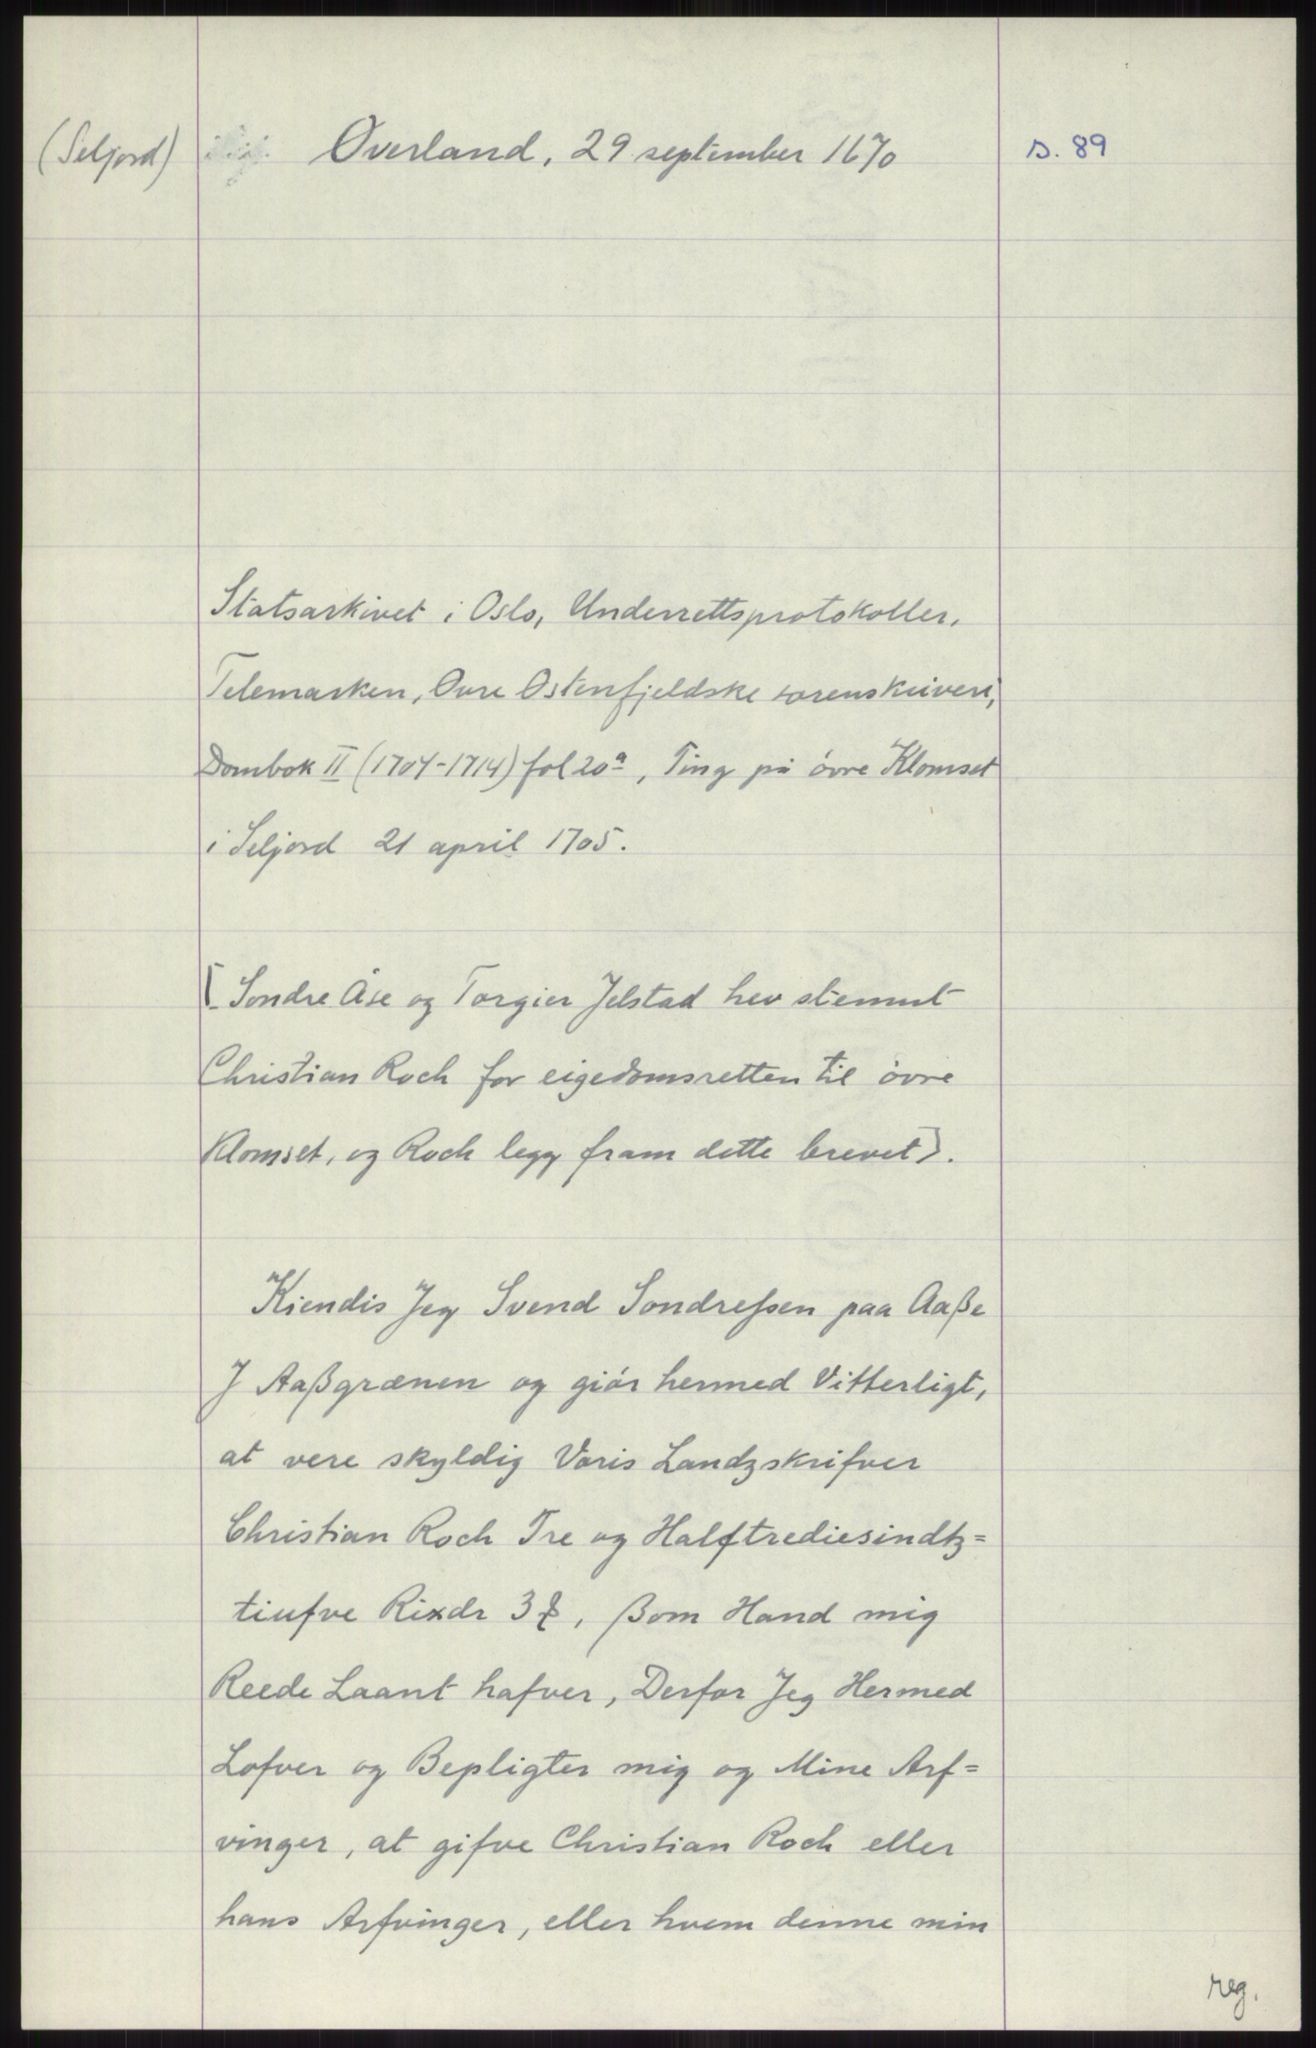 (Seljord) Overland, 29 september 1670 s. 89
Statsarkivet i Oslo, Underrettsprotokoller,
Telemarken, Øvre Østenfjeldske sorenskriveri,
Dombok II (1704-1714) fol 20a, Ting på øvre Klomset
i Seljord 21 april 1705.
[Sondre Åse og Torgier Jelstad hev stemnt
Christian Roch for eigedomsretten til øvre
Klomset, og Roch legg fram dette brevet].
Kiendis Jeg Svend Sondreſsen paa Aaße
J Aaßgrænen og giör hermed Vitterligt,
at vere skyldig Voris Landzskrifver
Christian Roch Tre og Halftrediesindtz=
tiufve Rixdr 3 , ßom Hand mig
Reede Laant hafver, Derfor Jeg Hermed
Lofver og Bepligter mig og Mine Arf=
vinger, at gifve Christian Roch eller
hans Arfvinger, eller hvem denne min
reg.